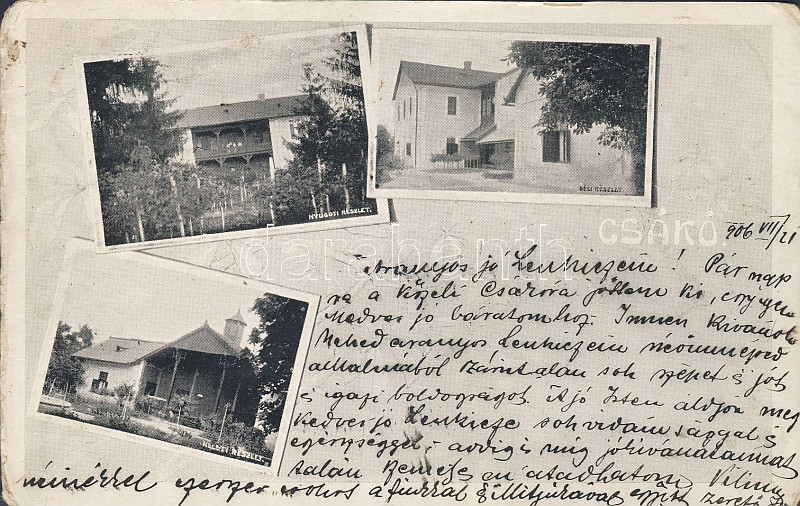 NYUGOTI RÉSZLET.
DÉLI RÉSZLET.
KELETI RÉSZLET.
CSÁKÓ.
darabanth
906 VII/21
Aranyos jó Lenkiczém! Pár nap
ra a közeli Csákóra jöttem ki, egy igen
kedves jó barátomhoz. Innen kivánok
Neked aranyos Lenkiczém
alkalmából számtalan sok szépet s jót
s igazi boldogságot. A jó Isten áldjon meg
kedves jó Lenkicze sok vidámsággal s
egészséggel - addig is míg jókivánataimat
talán személyesen átadhatom Vilma
nénikkel ezerszer csókol a fiúkkal s együtt szerető